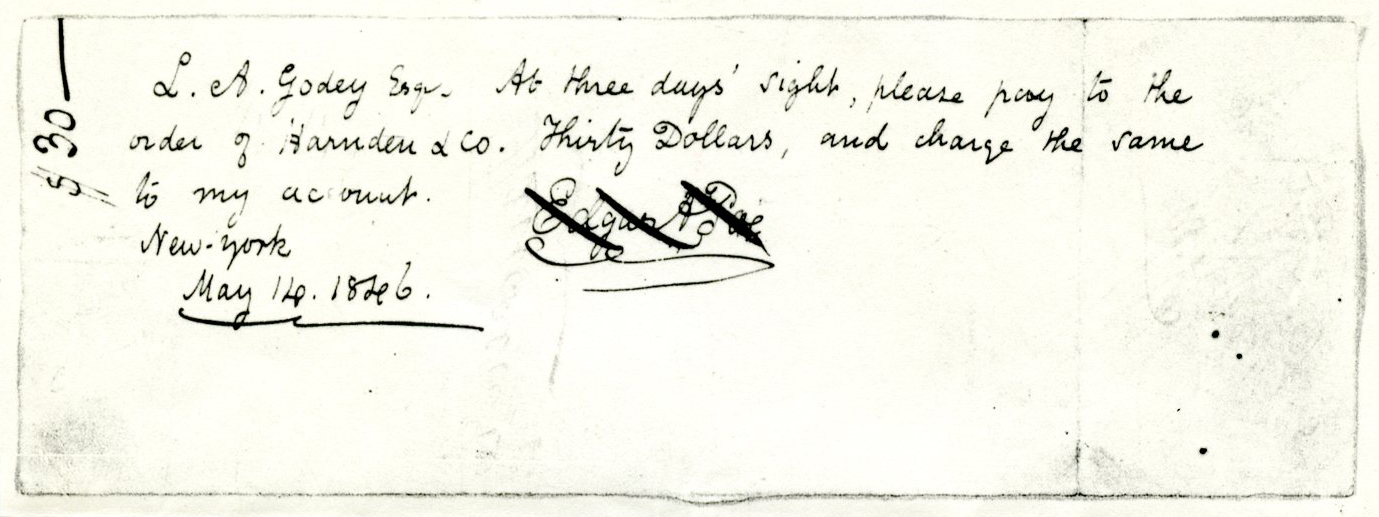 $30
L. A. Godey Esqr. At three days' sight, please pay to the
order of Harnden & Co. Thirty Dollars, and charge the same
to my account.
Edgar A Poe
New-York
May 14. 1846.